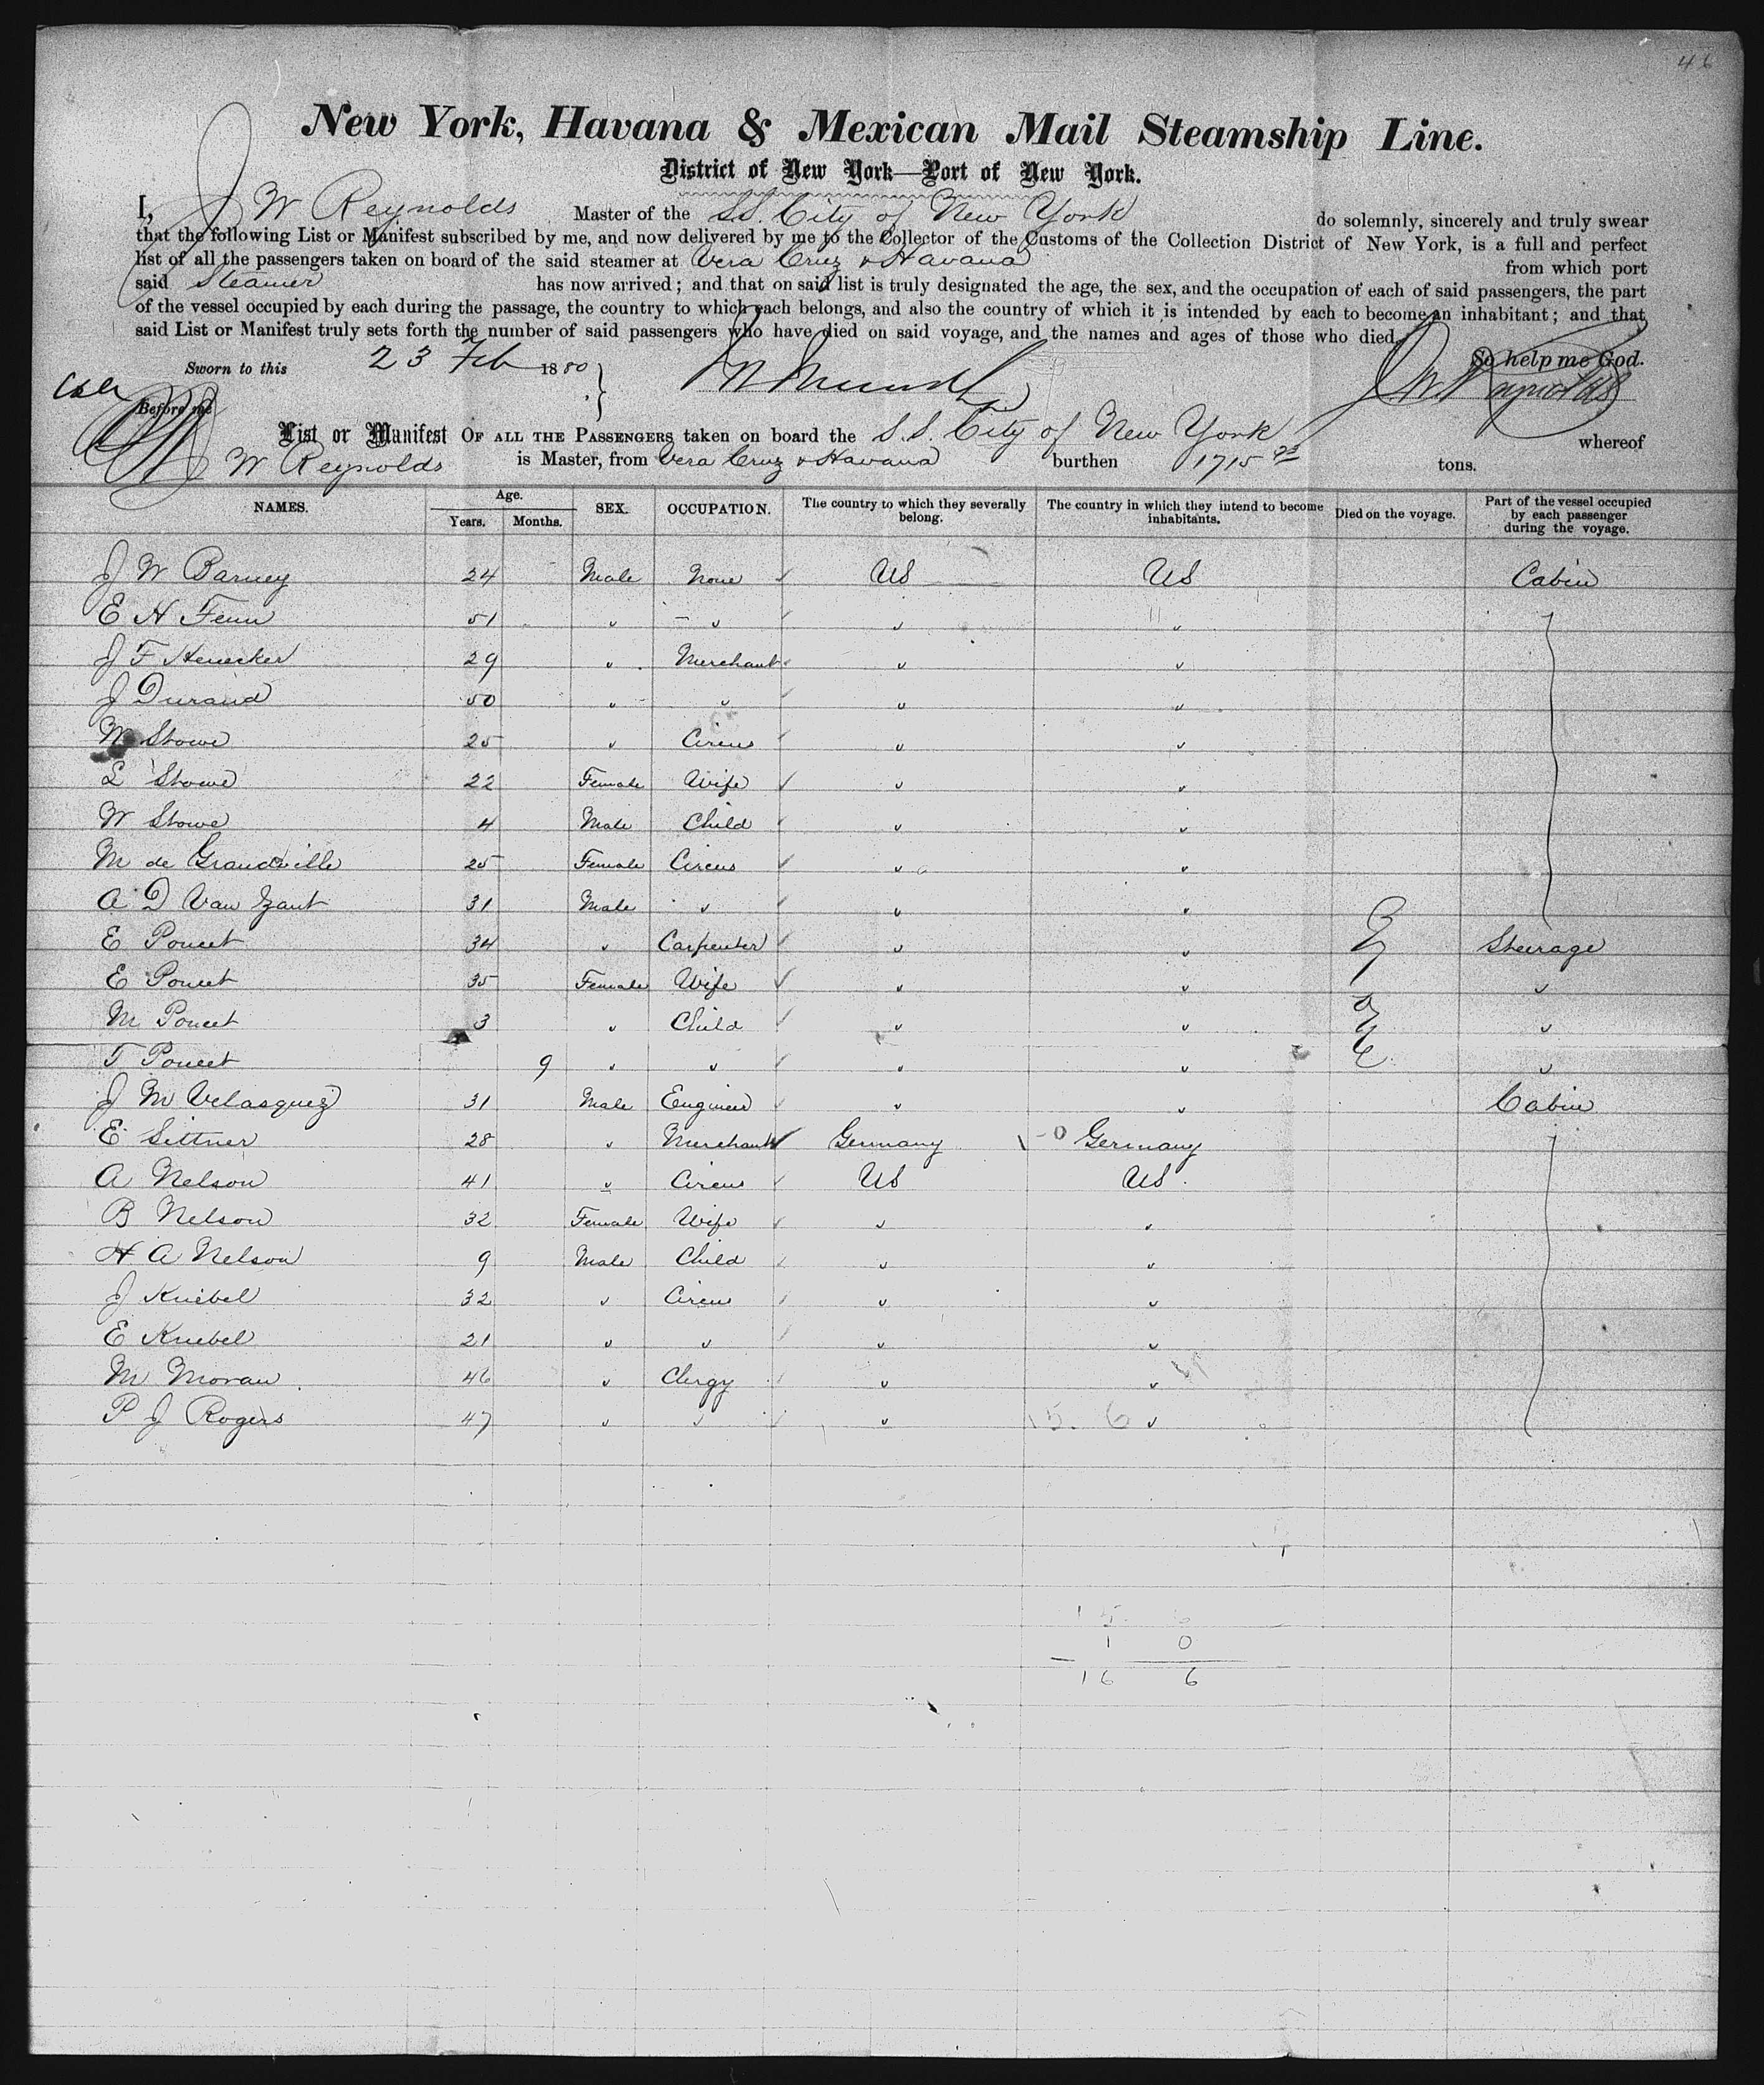 46
New York, Havana & Mexican Mail Steamship Line.
District of New York—Port of New York.
I, J W Reynolds Master of the S.S. City of New York do solemnly, sincerely and truly swear
that the following List or Manifest subscribed by me, and now delivered by me to the Collector of the Customs of the Collection District of New York, is a full and perfect
list of all the passengers taken on board of the said steamer at Vera Cruz & Havana from which port
said Steamer has now arrived; and that on said list is truly designated the age, the sex, and the occupation of each of said passengers, the part
of the vessel occupied by each during the passage, the country to which each belongs, and also the country of which it is intended by each to become an inhabitant; and that
said List or Manifest truly sets forth the number of said passengers who have died on said voyage, and the names and ages of those who died.
Sworn to this 23 Feb 1880 So help me God.
Before me J W Reynolds
List or Manifest OF ALL THE PASSENGERS taken on board the S.S. City of New York whereof
J W Reynolds is Master, from Vera Cruz & Havana burthen 1715 tons.
NAMES. Age. Years. Months. SEX. OCCUPATION. The country to which they severally belong. The country in which they intend to become inhabitants. Died on the voyage. Part of the vessel occupied by each passenger during the voyage.
J W Barney 24 Male None US US Cabin
E H Fenn 51 " " " "
J F Henecker 29 " Merchant " "
J Durand 50 " " " "
W Stowe 25 " Circus " "
L Stowe 22 Female Wife " "
W Stowe 4 Male Child " "
M de Grandville 25 Female Circus " "
A D Van Zant 31 Male " " "
E Poncet 34 " Carpenter " " Steerage
E Poncet 35 Female Wife " " "
M Poncet 3 " Child " " "
T Poncet 9 " " " " "
J M Velasquez 31 Male Engineer " " Cabin
E Sittner 28 " Merchant Germany 1-0 Germany
A Nelson 41 " Circus US US
B Nelson 32 Female Wife " "
H A Nelson 9 Male Child " "
J Knebel 32 " Circus " "
E Knebel 21 " " " "
M Moran 46 " Clergy " "
P J Rogers 47 " " " 15. 6 "
15 6
1 0
16 6